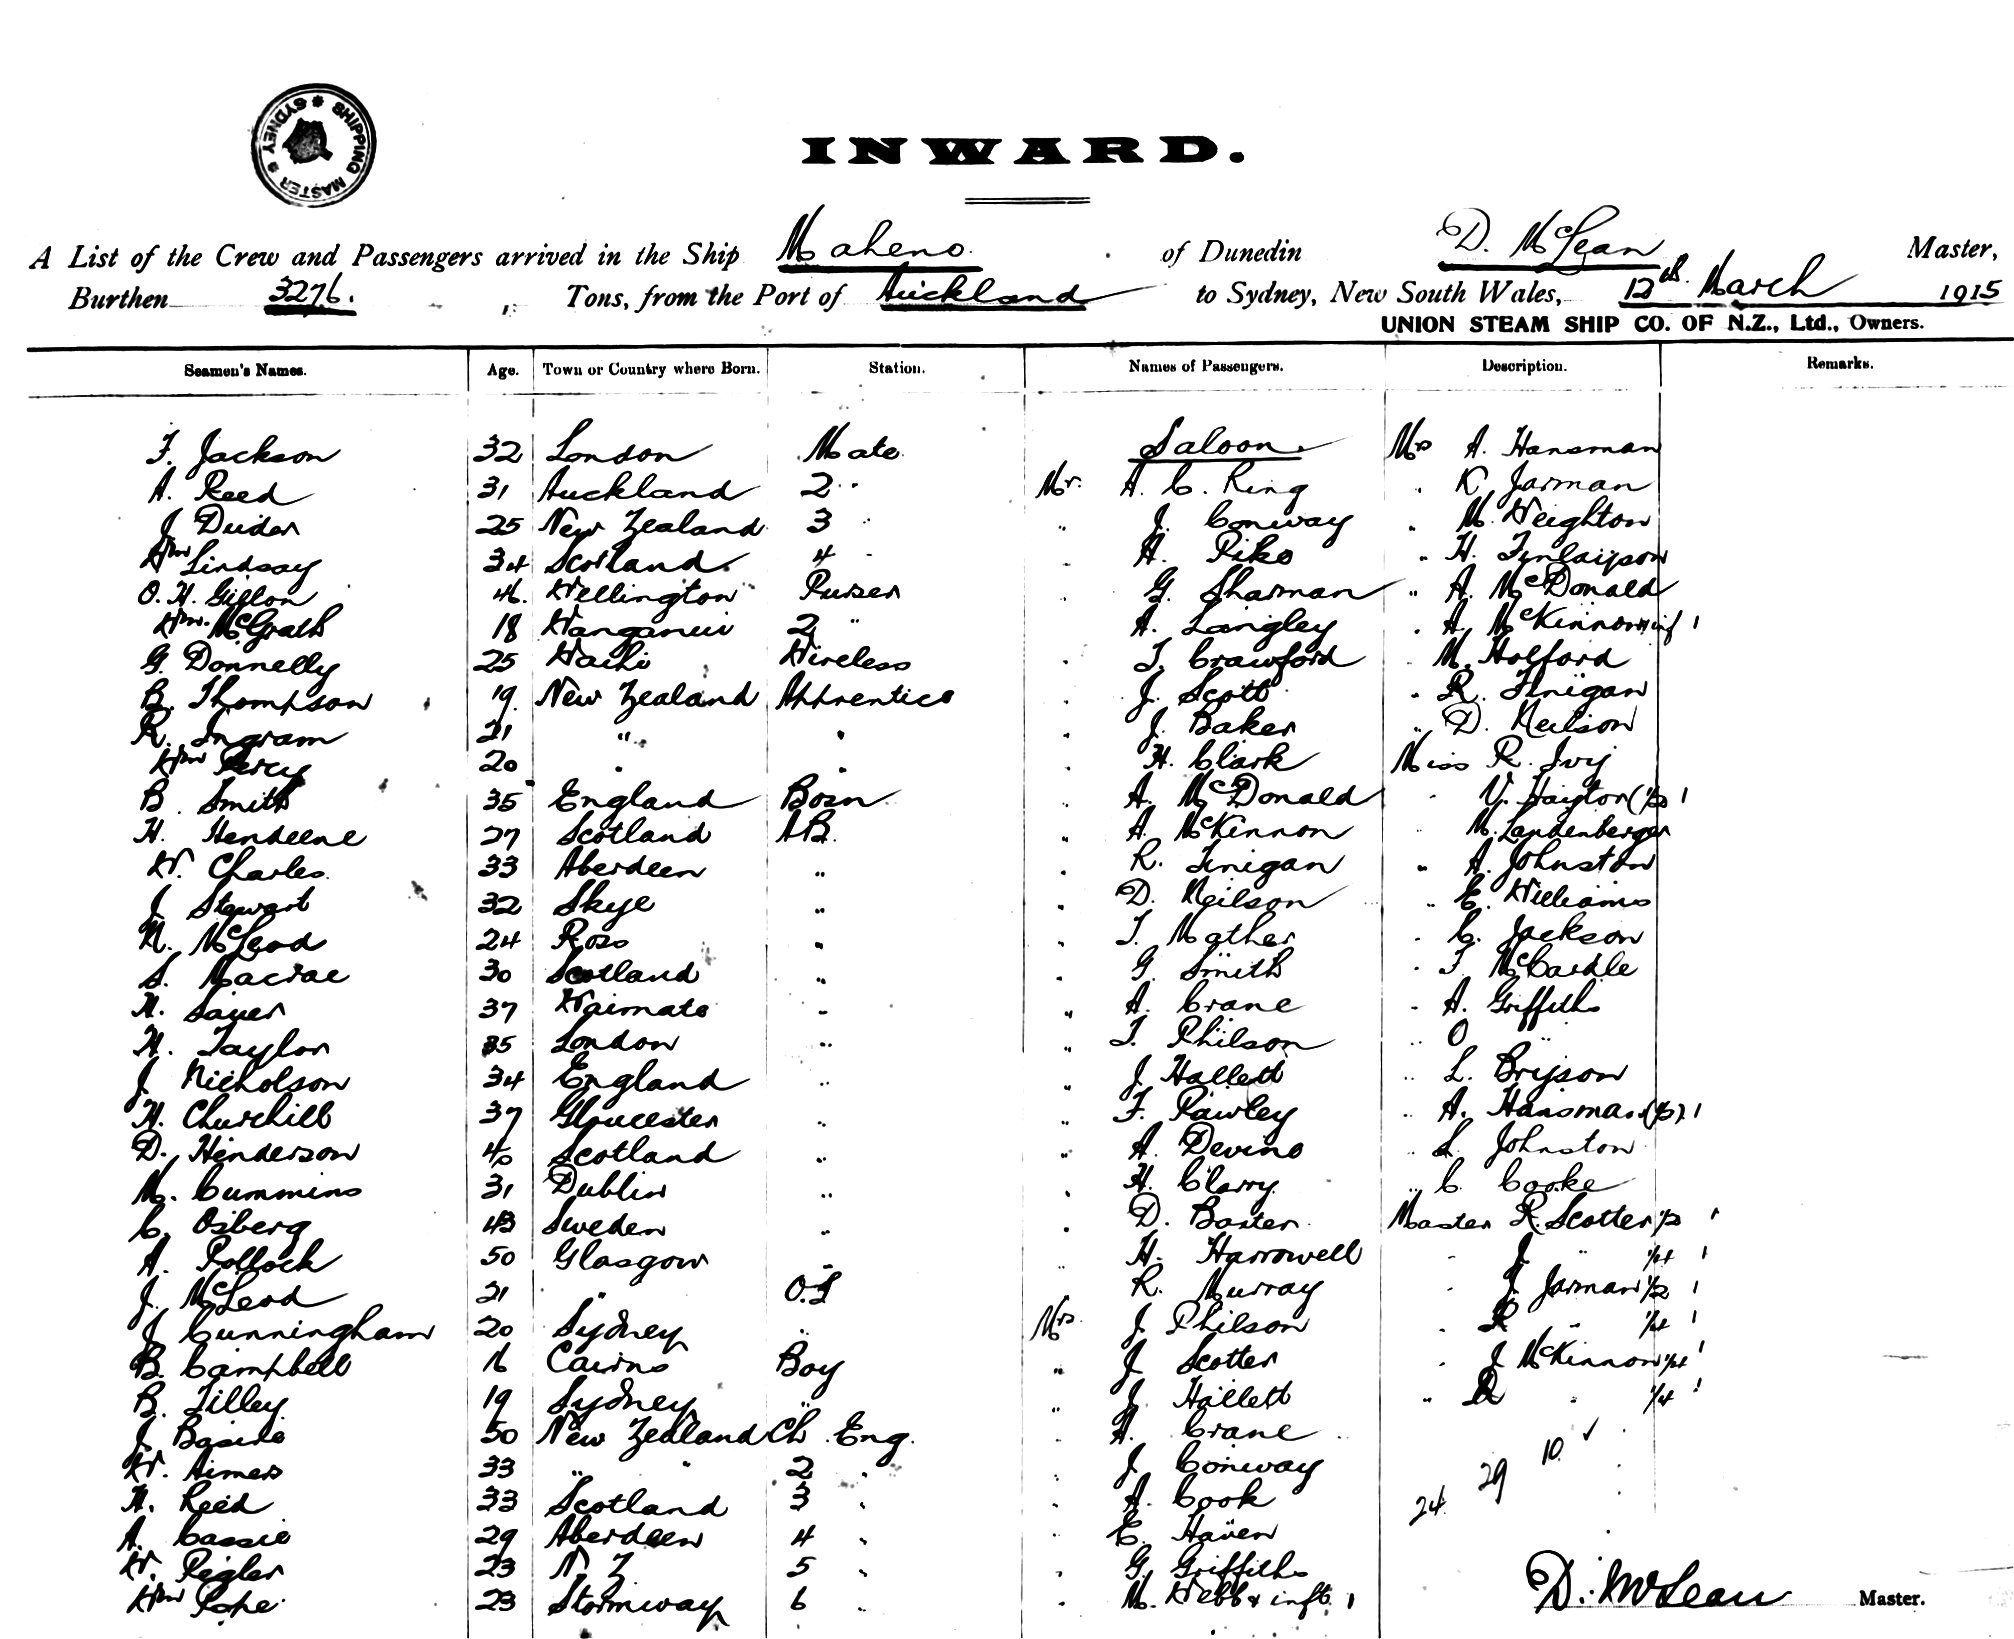 SHIPPING MASTER * SYDNEY *
INWARD.
A List of the Crew and Passengers arrived in the Ship Maheno of Dunedin D. McLean Master,
Burthen 3276. Tons, from the Port of Auckland to Sydney, New South Wales, 12th March 1915
UNION STEAM SHIP CO. OF N.Z., Ltd., Owners.
Seamen's Names. Age. Town or Country where Born. Station. Names of Passengers. Description. Remarks.
F. Jackson 32 London Mate Saloon Mrs A. Hansman
A. Reed 31 Auckland 2 " Mr. A. C. King . K. Jarman
J. Duder 25 New Zealand 3 " " J. Conway " M. Heighton
Wm Lindsay 34 Scotland 4 " . H. Pike " H. Finlayson
O. H. Gillon 46. Wellington Purser . G. Sharman " A. McDonald
Wm. McGrath 18 Wanganui 2 " . A. Langley . A. McKinnon & inf 1
G. Donnelly 25 Waihi Wireless . T. Crawford . M. Holford
B. Thompson 19. New Zealand Apprentice . J. Scott . R. Finigan
R. Ingram 21 " " . J. Baker " D. Neilson
Wm Percy 20 " " . H. Clark Miss R. Ivij
B. Smith 35 England Bosn . A. McDonald . V. Haytor (1/2) 1
H. Hendeene 27 Scotland AB. " A. McKinnon " M. Landenberger
W. Charles 33 Aberdeen " . R. Finigan " A. Johnston
J. Stewart 32 Skye " . D. Neilson " E. Williams
N. McLeod 24 Ross " . T. Mather . C. Jackson
S. Macrae 30 Scotland " . G. Smith . F. McCardle
H. Sayer 37 Waimate " " A. Crane . A. Griffiths
H. Taylor 35 London " " T. Philson " O "
J. Nicholson 34 England " " J. Hallett " L. Brijson
H. Churchill 37 Gloucester " " F. Pawley " A. Hansman (1/2) 1
D. Henderson 40 Scotland " " A. Devine " L. Johnston
M. Cummins 31 Dublin " . H. Clarry " C. Cooke
C. Osberg 43 Sweden " . D. Baxter Master R. Scotter 1/2 1
A. Pollock 50 Glasgow " " H. Harrowell . J. " 1/4 1
J. McLeod 21 " O.S . R. Murray . J. Jarman 1/2 1
J. Cunningham 20 Sydney " Mrs. J. Philson . R " 1/4 1
B. Campbell 16 Cairns Boy " J. Scotter . J McKinnon 1/4 1
B. Tilley 19 Sydney " " J. Hallett " D " 1/4 1
J. Basire 50 New Zealand Ch Eng. . A. Crane
W. Aimers 33 " " 2 " . J. Conway 10 ✓
H. Reid 33 Scotland 3 " . A. Cook 24 29
A. Cassie 29 Aberdeen 4 " " E. Haven
W. Pegler 23 N Z 5 " . G. Griffiths
Wm Pope 23 Stornway 6 " . M. Webb & inft. 1 D. McLean Master.